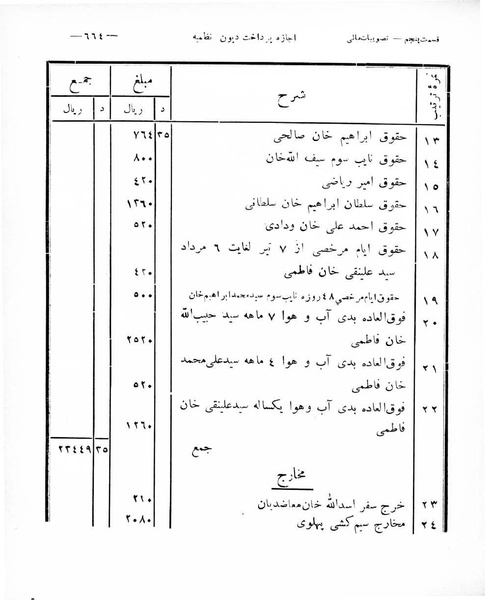 قسمت پنجم — تصویبات مالی اجازه پرداخت دیون نظمیه —۶۶۴—
نمرۀ ترتیب شرح مبلغ جمع
د ریال د ریال
۱۳ حقوق ابراهیم خان صالحی ۳۵ ۷۶۴
۱۴ حقوق نایب سوم سیف الله خان ۸۰۰
۱۵ حقوق امیر ریاضی ۴۲۰
۱۶ حقوق سلطان ابراهیم خان سلطانی ۱۳۶۰
۱۷ حقوق احمد علی خان ودادی ۵۲۰
۱۸ حقوق ایام مرخصی از ۷ تیر لغایت ۶ مرداد
سید علینقی خان فاطمی ۴۲۰
۱۹ حقوق ایام مرخصی ۴۸ روزه نایب سوم سید محمد ابراهیم خان ۵۰۰
۲۰ فوق العاده بدی آب و هوا ۷ ماهه سید حبیب الله
خان فاطمی ۲۵۲۰
۲۱ فوق العاده بدی آب و هوا ۴ ماهه سید علی محمد
خان فاطمی ۵۲۰
۲۲ فوق العاده بدی آب وهوا یکساله سید علینقی خان
فاطمی ۱۲۶۰
جمع ۳۵ ۲۳۴۴۹
مخارج
۲۳ خرج سفر اسدالله خان معاضدیان ۲۱۰
۲۴ مخارج سیم کشی پهلوی ۲۰۸۰